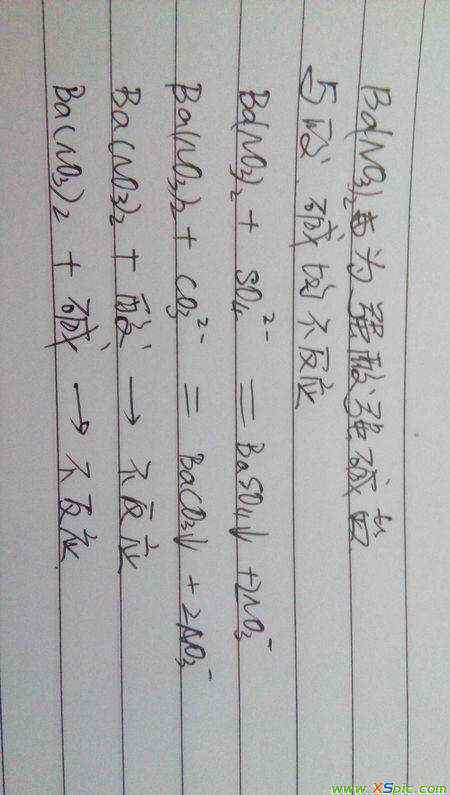 Ba(NO3)2为强酸强碱盐
与酸 碱均不反应
Ba(NO3)2 + SO4^2- = BaSO4↓ + 2NO3^-
Ba(NO3)2 + CO3^2- = BaCO3↓ + 2NO3^-
Ba(NO3)2 + 酸 → 不反应
Ba(NO3)2 + 碱 → 不反应
www.XSpic.com